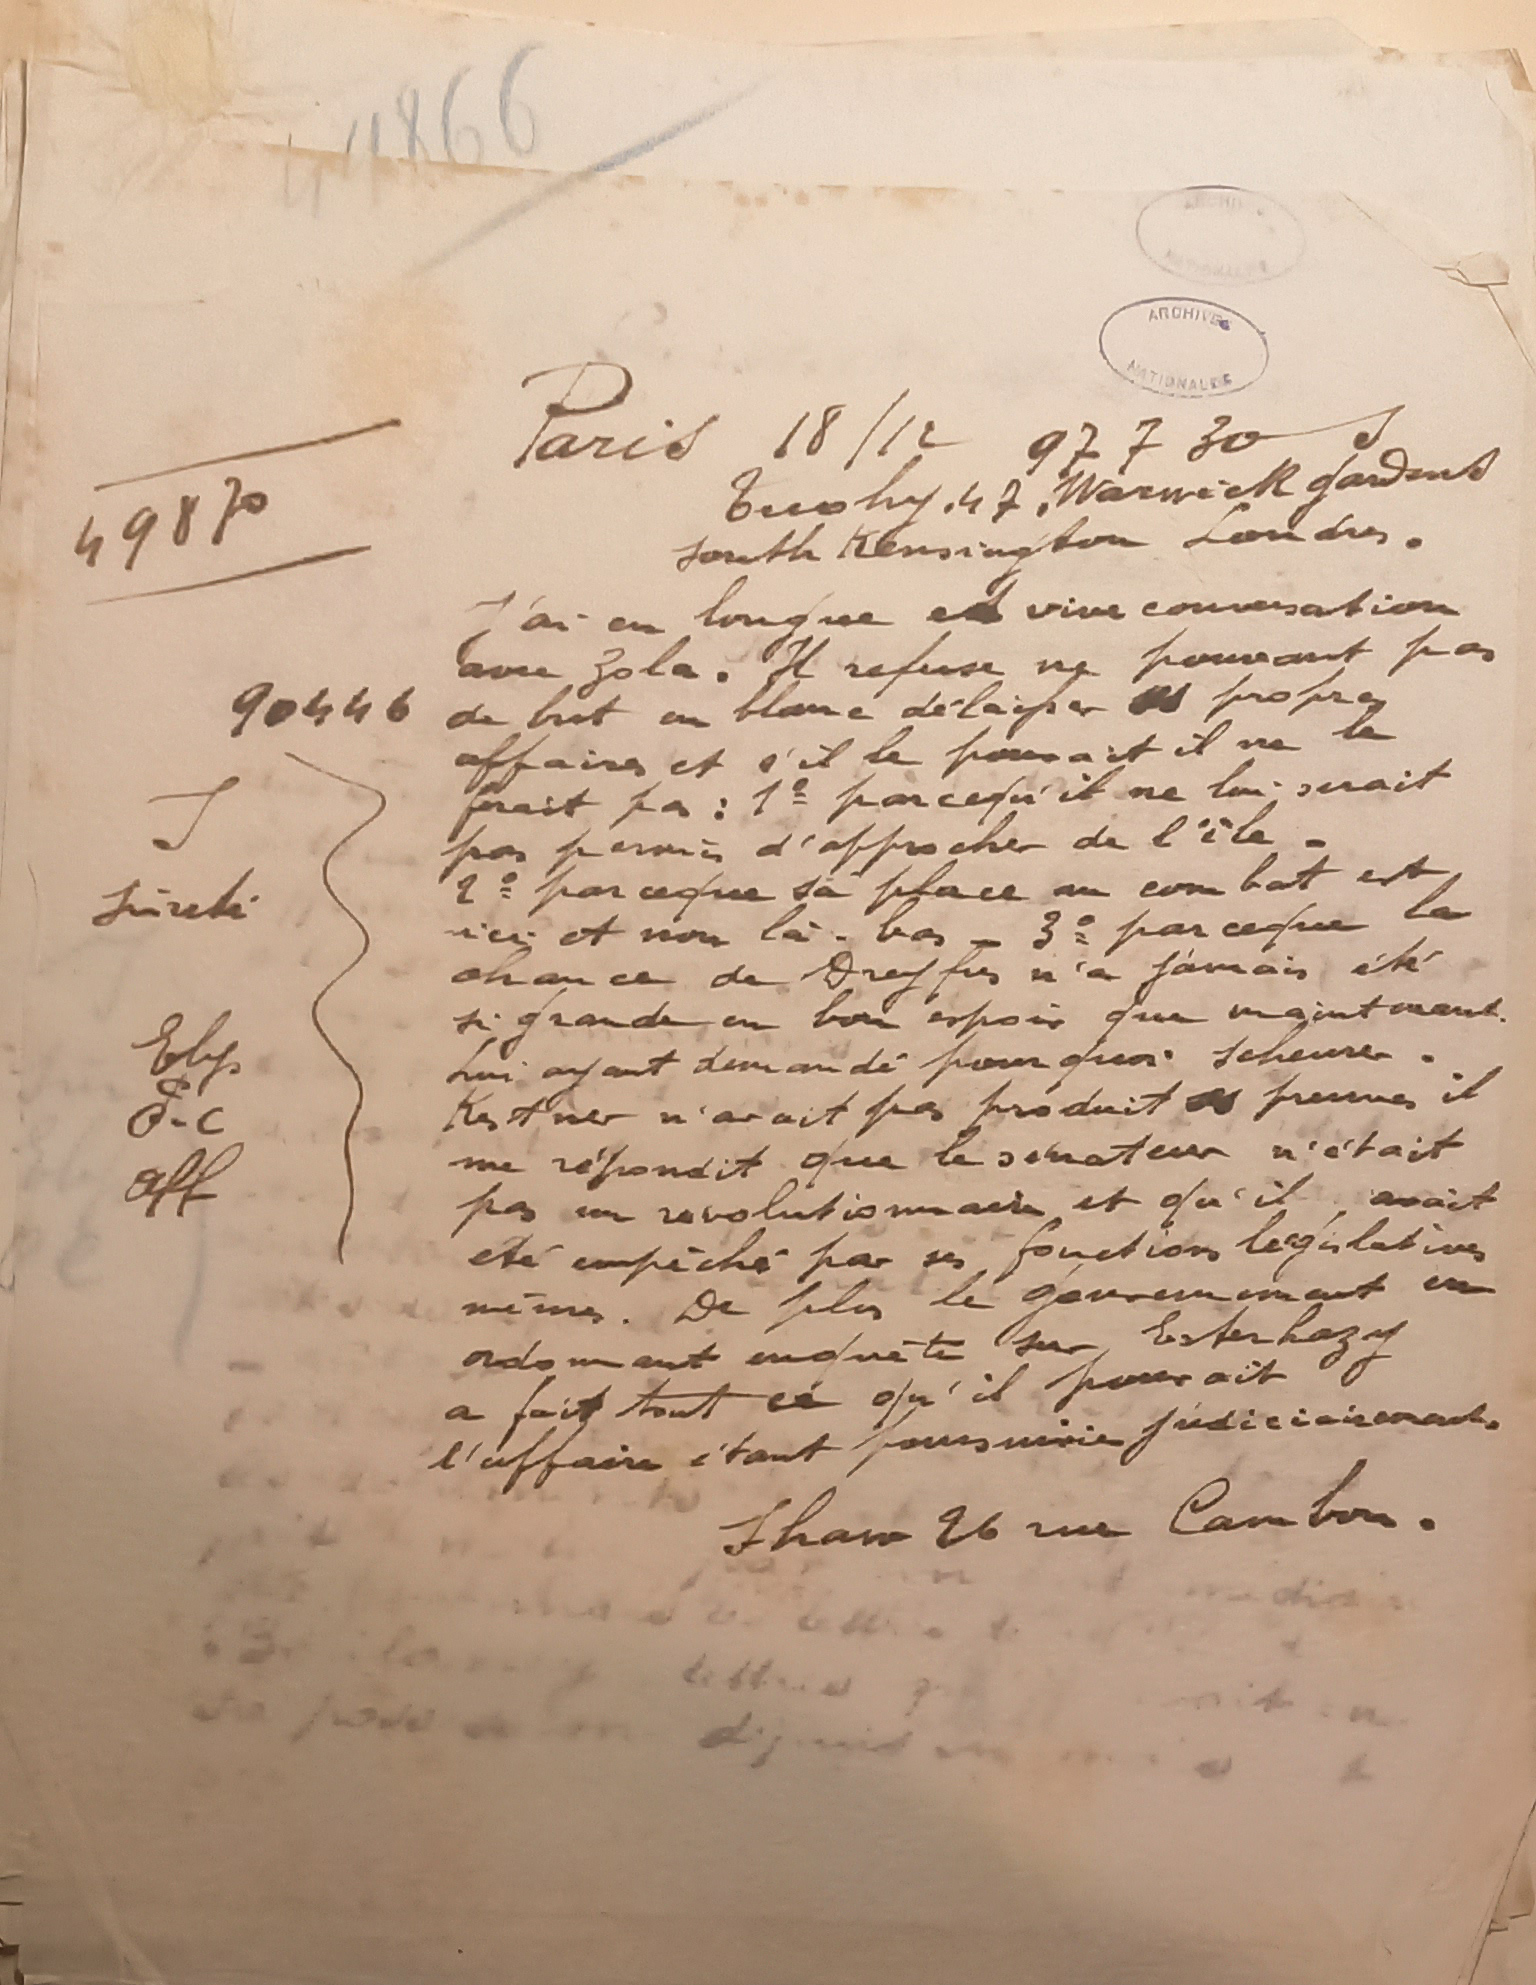 44866
ARCHIVES
NATIONALES
ARCHIVES
NATIONALES
Paris 18/12 97 7 30 S
49870
Tuohy. 47. Warwick gardens
south Kensington Londres.
J'ai eu longue et vive conversation
avec Zola. Il refuse ne pouvant pas
90446
de but en blanc délaisser ses propres
affaires et s'il le pouvait il ne le
ferait pas : 1º parcequ'il ne lui serait
pas permis d'approcher de l'île.
2º parceque sa place au combat est
Sûreté
ici et non là-bas - 3º parceque la
chance de Dreyfus n'a jamais été
si grande en bon espoir que maintenant.
Elys
Lui ayant demandé pourquoi Scheurer-
P-C
Kestner n'avait pas produit ses preuves il
aff
me répondit que le sénateur n'était
pas un revolutionnaire et qu'il avait
été empêché par ses fonctions législatives
mêmes. De plus le gouvernement en
ordonnant enquête sur Esterhazy
a fait tout ce qu'il pouvait
l'affaire étant poursuivie judiciairement.
Shaw 26 rue Cambon.